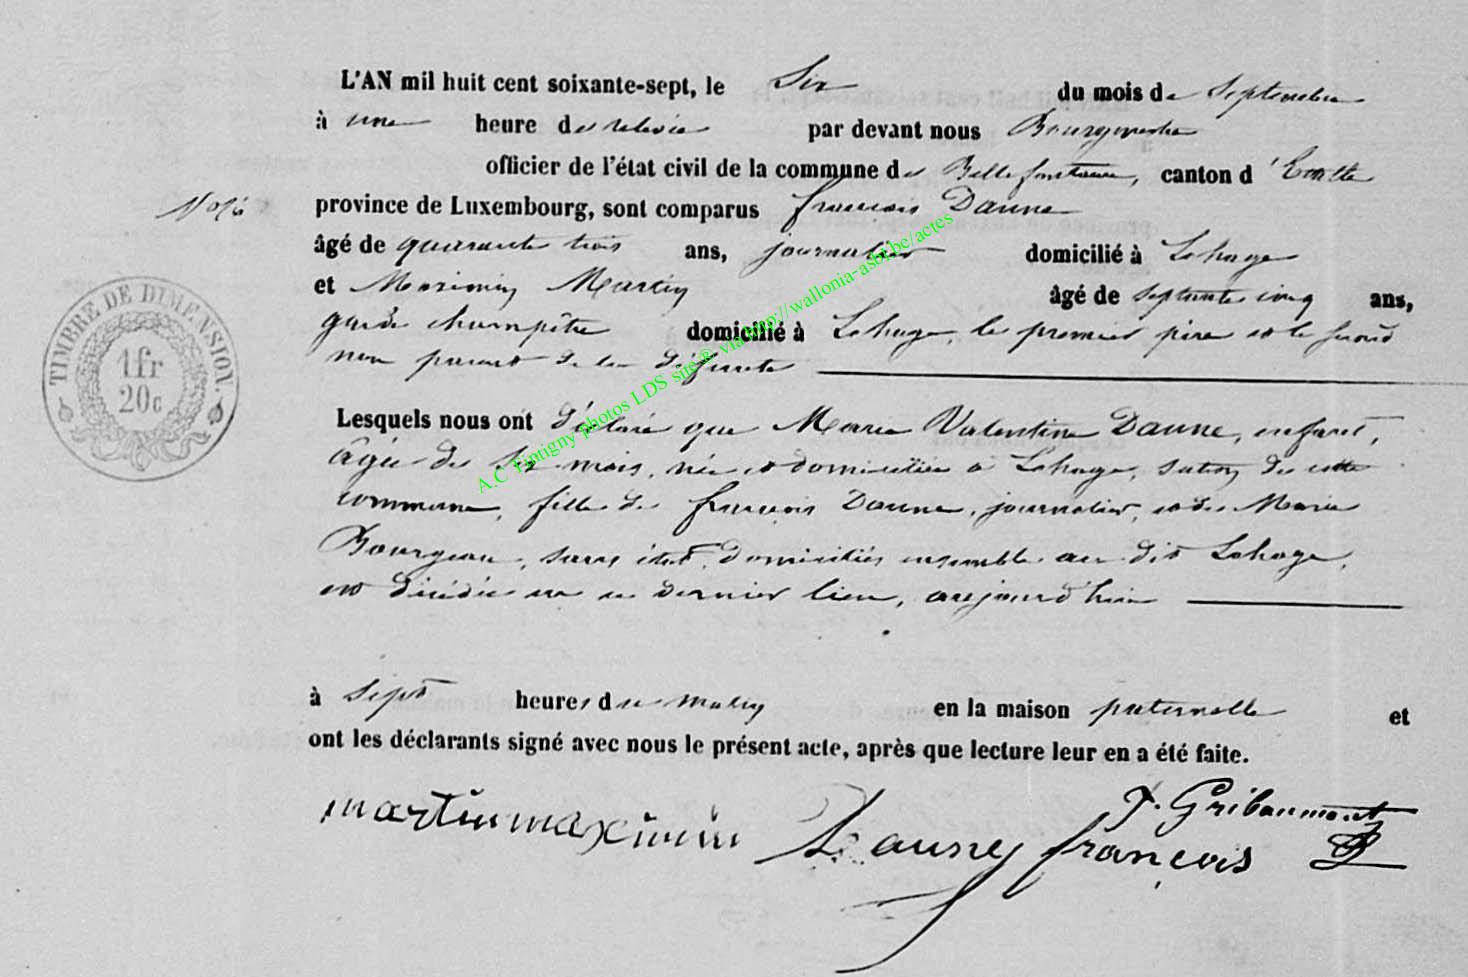 L'AN mil huit cent soixante-sept, le Six du mois de Septembre
à une heure de relevée par devant nous Bourgmestre
officier de l'état civil de la commune de Bellefontaine, canton d'Etalle
province de Luxembourg, sont comparus françois Daune
âgé de quarante trois ans, journalier domicilié à Lahage
et Maximin Martin âgé de septante cinq ans,
garde champêtre domicilié à Lahage, le premier père et le second
non parent de la défunte
Lesquels nous ont déclaré que Marie Valentine Daune, enfant,
âgée de six mois, née et domiciliée à Lahage, section de cette
commune, fille de françois Daune, journalier, et de Marie
Bourgeau, sans état, domiciliés ensemble au dit Lahage,
est décédée en ce dernier lieu, aujourd'hui
à sept heures du matin en la maison paternelle et
ont les déclarants signé avec nous le présent acte, après que lecture leur en a été faite.
martin maximin Dauney françois J. Gribaumont
TIMBRE DE DIMENSION.
1fr
20c
A.C Tintigny photos LDS site® via http://wallonia-asbl.be/actes